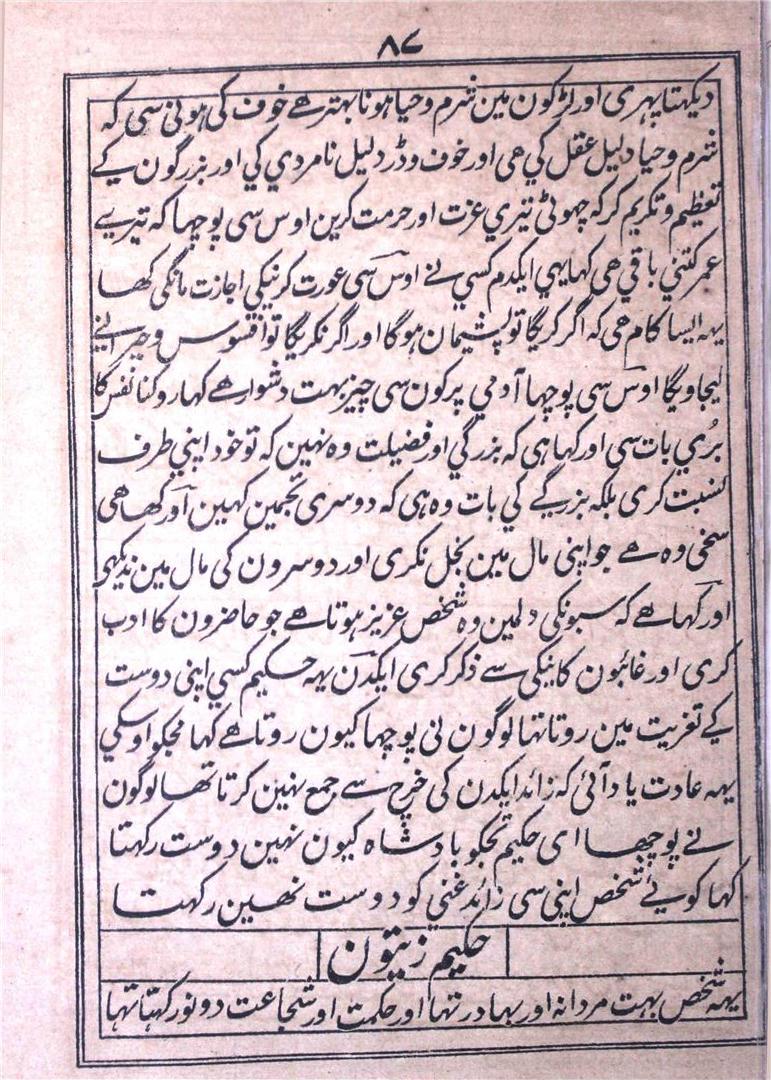 ۸۷
دیکہتا پہری اور لڑکون مین شرم وحیا ہونا بہتر ھے خوف کی ہونی سی کہ
شرم وحیا دلیل عقل کي ھی اور خوف وڈر دلیل نامردي کي اور بزرگون کے
تعظیم وتکریم کر کہ چہوٹی تیري عزت اور حرمت کرین اوس سی پوچہا کہ تیرے
عمر کتني باقي ھی کہا یہي ایکدم کسي نے اوس سی عورت کرنیکي اجازت مانگی کھا
یہہ ایسا کام ھی کہ اگر کریگا تو پشیمان ہوگا اور اگر نکریگا تو افسوس وحیرانے
لیجاویگا اوس سی پوچہا آدمي پر کون سی چیز بہت دشوار ھے کہا روکنا نفس کا
بُري بات سی اور کہا ہی کہ بزرگي اور فضیلت وہ نہین کہ تو خود اپني طرف
نسبت کری بلکہ بزرگے کي بات وہ ہی کہ دوسری تجہمین کہین اور کھا ھی
سخی وہ ھے جو اپنی مال مین بخل نکری اور دوسرون کی مال مین ندیکہی
اور کہا ھے کہ سبونکی دلمین وہ شخص عزیز ہوتا ھے جو حاضرون کا ادب
کری اور غائبون کا نیکی سے ذکر کری ایکدن یہہ حکیم کسي اپنی دوست
کے تعزیت مین روتا تہا لوگون نی پوچہا کیون روتا ھے کہا مجکو اوسکي
یہہ عادت یاد آئی کہ زائد ایکدن کی خرچ سے جمع نہین کرتا تھا لوگون
نے پوچھا ای حکیم تجکو بادشاہ کیون نہین دوست رکہتا
کہا کوئے شخص اپنی سی زائد غني کو دوست نھین رکھتا
حکیم زیتون
یہہ شخص بہت مردانہ اور بہادر تہا اور حکمت اور شجاعت دونو رکہتا تہا